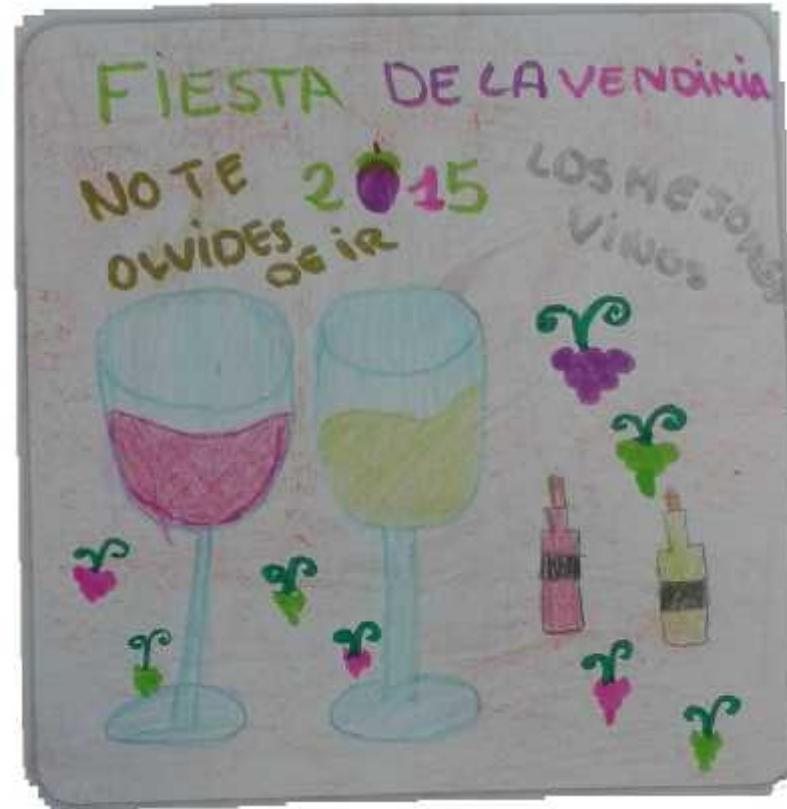 FIESTA DE LA VENDIMIA
NO TE
OLVIDES
DE IR
2015
LOS MEJORES
VINOS